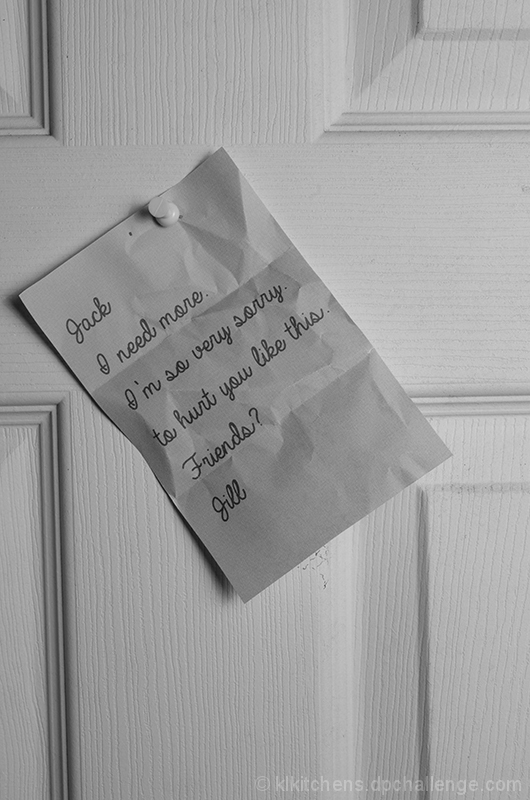 Jack
I need more.
I'm so very sorry.
to hurt you like this.
Friends?
Jill
© klkitchens.dpchallenge.com